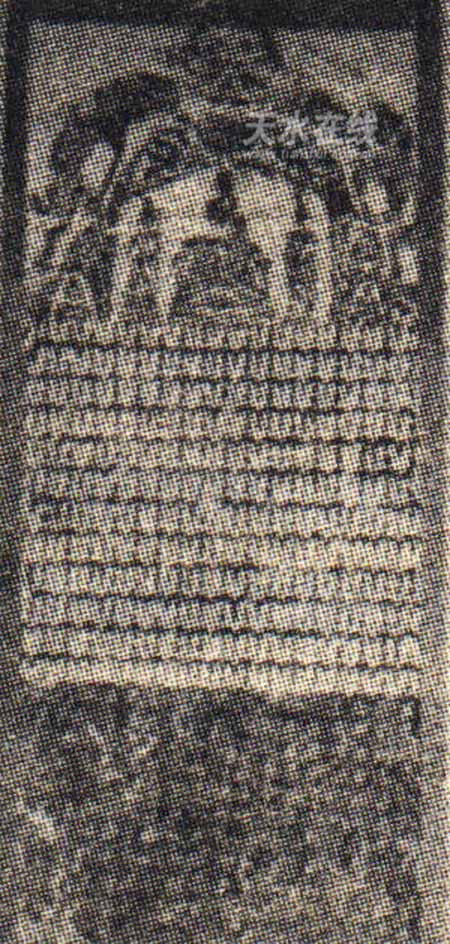 天水在线